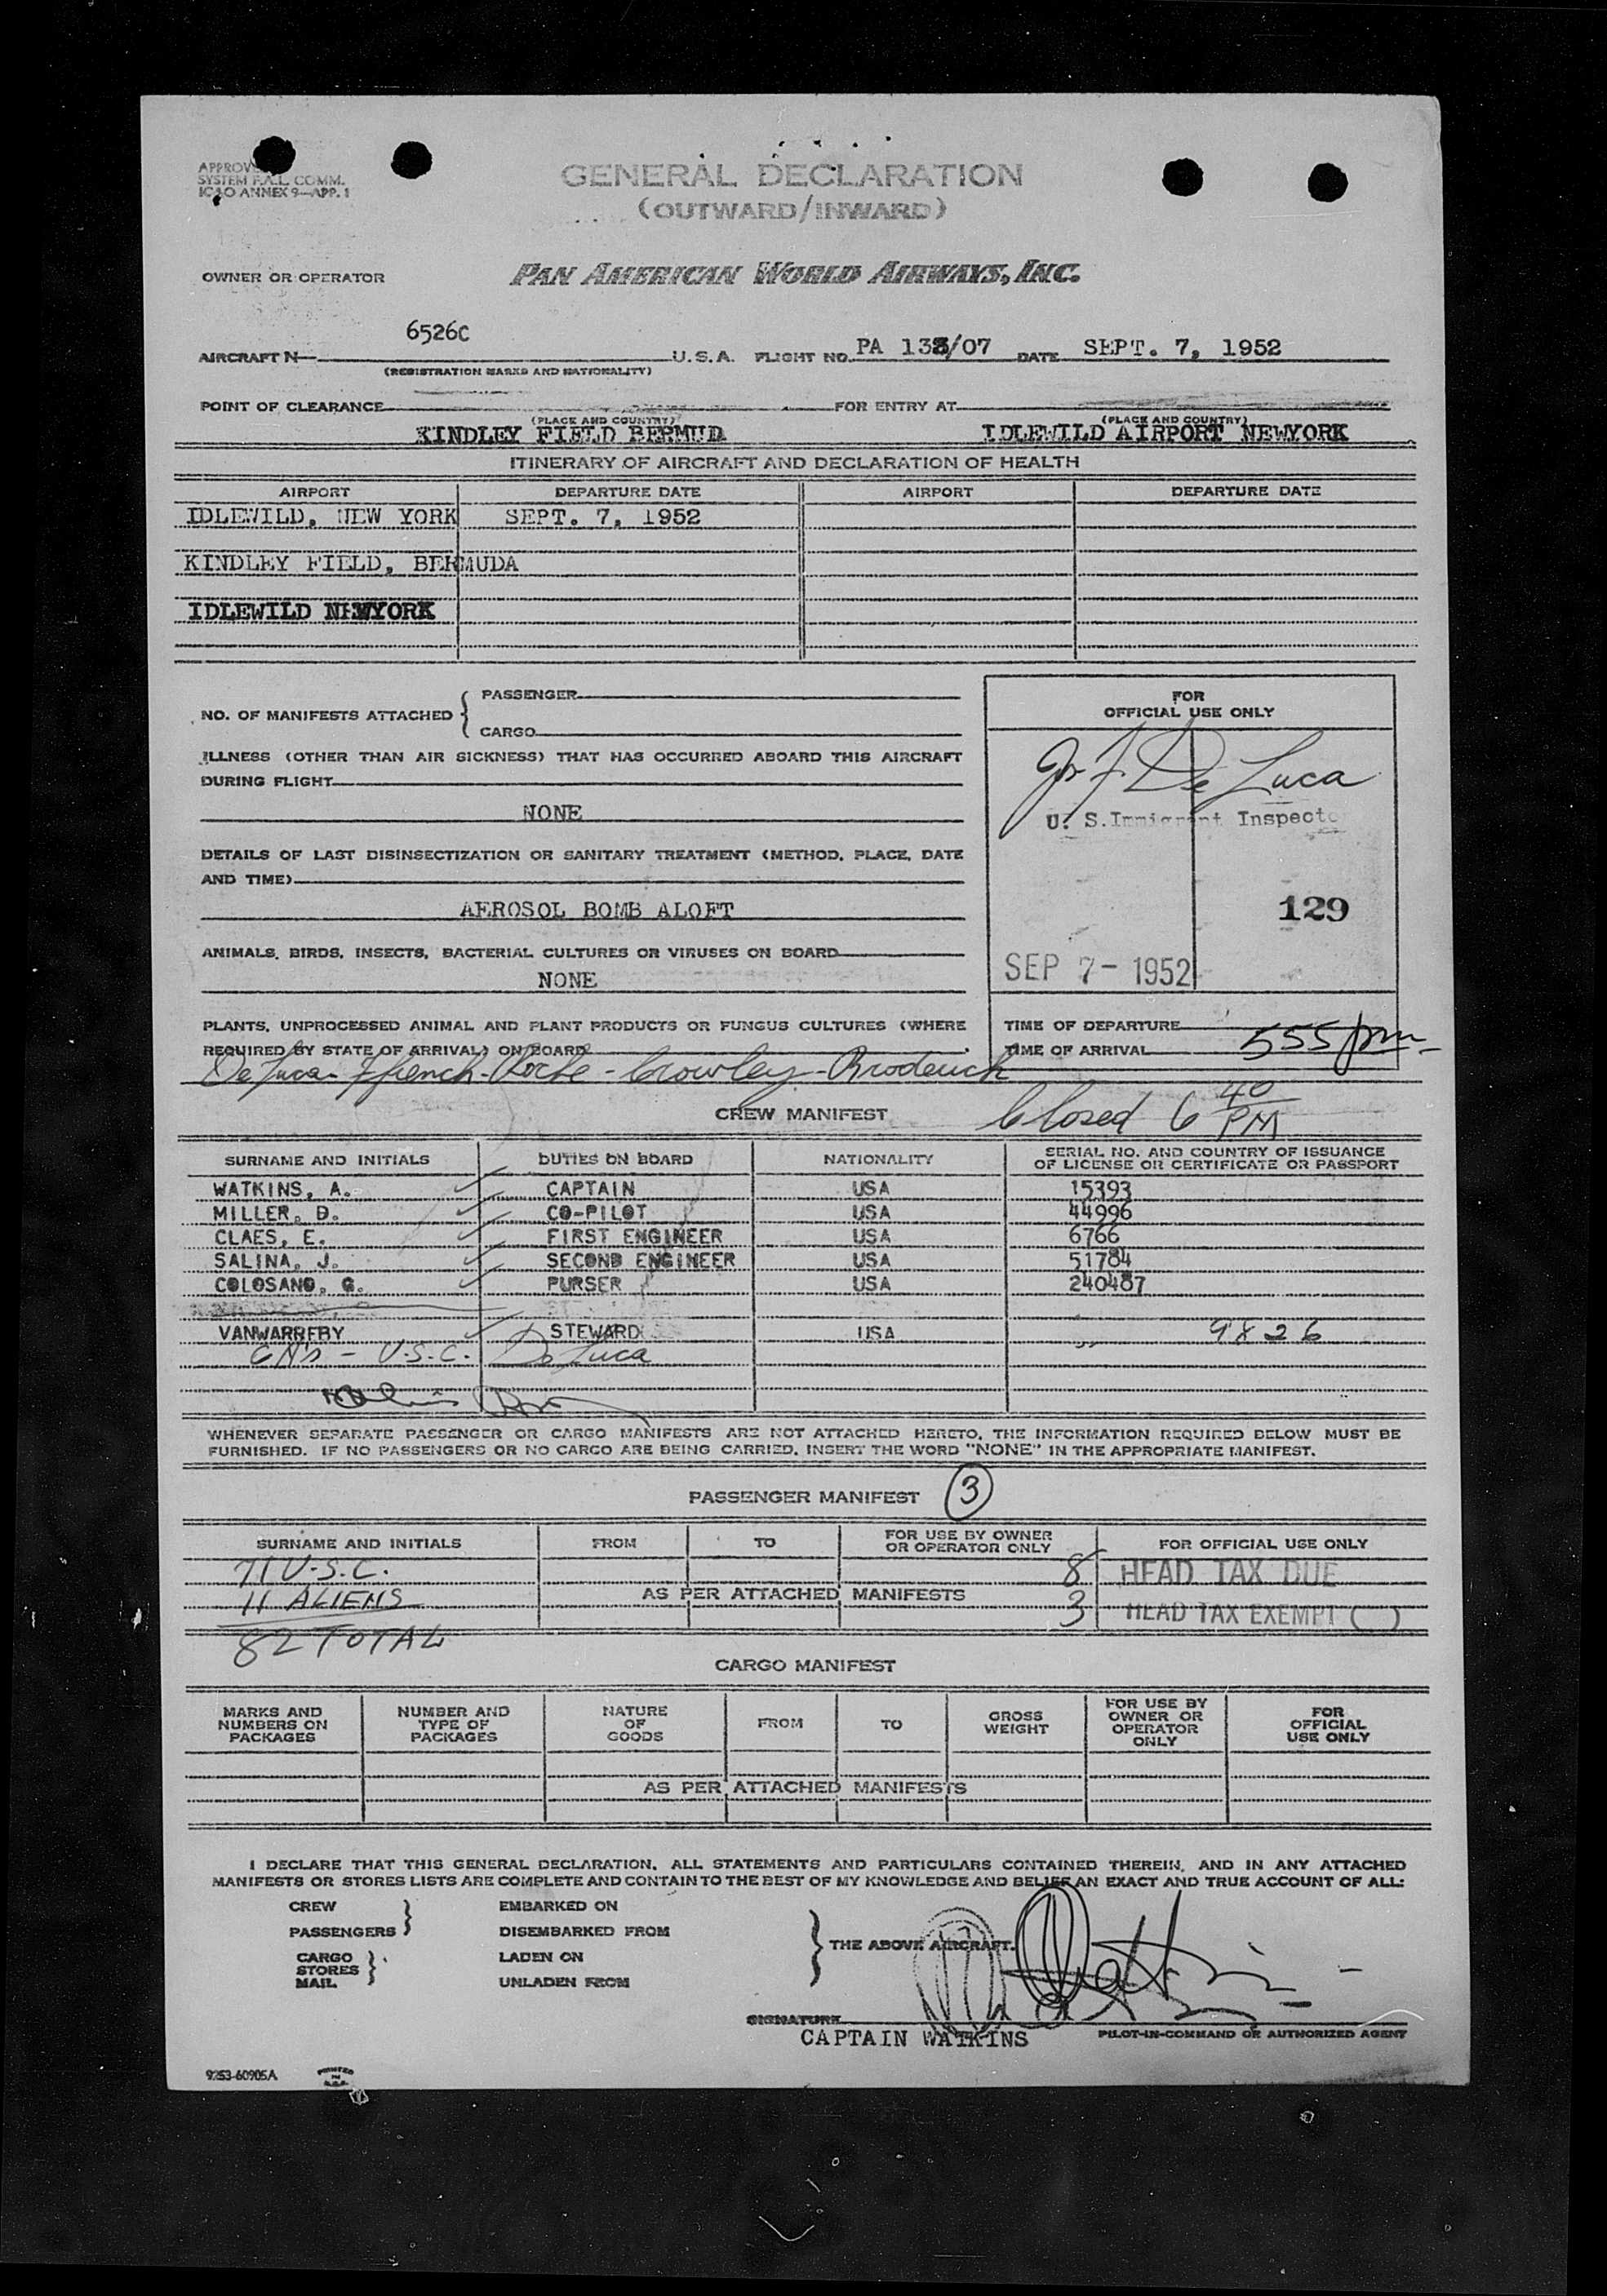 SYSTEM F.A.L. COMM.
ICAO ANNEX 9—APP. 1
GENERAL DECLARATION
(OUTWARD/INWARD)
OWNER OR OPERATOR PAN AMERICAN WORLD AIRWAYS, INC.
6526C
AIRCRAFT N U.S.A. FLIGHT NO. PA 138/07 DATE SEPT. 7, 1952
(REGISTRATION MARKS AND NATIONALITY)
POINT OF CLEARANCE FOR ENTRY AT
(PLACE AND COUNTRY) (PLACE AND COUNTRY)
KINDLEY FIELD BERMUD IDLEWILD AIRPORT NEWYORK
ITINERARY OF AIRCRAFT AND DECLARATION OF HEALTH
AIRPORT DEPARTURE DATE AIRPORT DEPARTURE DATE
IDLEWILD, NEW YORK SEPT. 7, 1952
KINDLEY FIELD, BERMUDA
IDLEWILD NEWYORK
NO. OF MANIFESTS ATTACHED { PASSENGER
CARGO
FOR
OFFICIAL USE ONLY
ILLNESS (OTHER THAN AIR SICKNESS) THAT HAS OCCURRED ABOARD THIS AIRCRAFT
DURING FLIGHT
NONE
De Luca
U. S. Immigrant Inspecto
DETAILS OF LAST DISINSECTIZATION OR SANITARY TREATMENT (METHOD, PLACE, DATE
AND TIME)
AEROSOL BOMB ALOFT
129
ANIMALS, BIRDS, INSECTS, BACTERIAL CULTURES OR VIRUSES ON BOARD
NONE
SEP 7- 1952
PLANTS, UNPROCESSED ANIMAL AND PLANT PRODUCTS OR FUNGUS CULTURES (WHERE
REQUIRED BY STATE OF ARRIVAL) ON BOARD
TIME OF DEPARTURE
TIME OF ARRIVAL 555 pm
De Luca - Ffrench - Roche - Crowley - Broderick
CREW MANIFEST Closed 6 40 PM
SURNAME AND INITIALS DUTIES ON BOARD NATIONALITY SERIAL NO. AND COUNTRY OF ISSUANCE
OF LICENSE OR CERTIFICATE OR PASSPORT
WATKINS, A. CAPTAIN USA 15393
MILLER, D. CO-PILOT USA 44996
CLAES, E. FIRST ENGINEER USA 6766
SALINA, J. SECOND ENGINEER USA 51784
COLOSANO, G. PURSER USA 240487
VANWARREBY STEWARD USA 9826
U.S.C. De Luca
WHENEVER SEPARATE PASSENGER OR CARGO MANIFESTS ARE NOT ATTACHED HERETO, THE INFORMATION REQUIRED BELOW MUST BE
FURNISHED. IF NO PASSENGERS OR NO CARGO ARE BEING CARRIED, INSERT THE WORD "NONE" IN THE APPROPRIATE MANIFEST.
PASSENGER MANIFEST 3
SURNAME AND INITIALS FROM TO FOR USE BY OWNER
OR OPERATOR ONLY FOR OFFICIAL USE ONLY
71 U.S.C. 8 HEAD TAX DUE
11 ALIENS AS PER ATTACHED MANIFESTS 3 HEAD TAX EXEMPT ( )
82 TOTAL
CARGO MANIFEST
MARKS AND
NUMBERS ON
PACKAGES
NUMBER AND
TYPE OF
PACKAGES
NATURE
OF
GOODS
FROM
TO
GROSS
WEIGHT
FOR USE BY
OWNER OR
OPERATOR
ONLY
FOR
OFFICIAL
USE ONLY
AS PER ATTACHED MANIFESTS
I DECLARE THAT THIS GENERAL DECLARATION, ALL STATEMENTS AND PARTICULARS CONTAINED THEREIN, AND IN ANY ATTACHED
MANIFESTS OR STORES LISTS ARE COMPLETE AND CONTAIN TO THE BEST OF MY KNOWLEDGE AND BELIEF AN EXACT AND TRUE ACCOUNT OF ALL:
CREW EMBARKED ON
PASSENGERS DISEMBARKED FROM
THE ABOVE AIRCRAFT.
CARGO LADEN ON
STORES
MAIL UNLADEN FROM
SIGNATURE
CAPTAIN WATKINS PILOT-IN-COMMAND OR AUTHORIZED AGENT
9253-60905A PRINTED IN U.S.A.